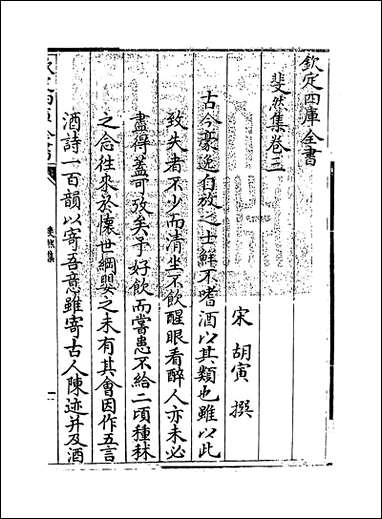 欽定四庫全書
斐然集卷三
宋 胡寅 撰
古今豪逸自放之士鮮不嗜酒以其類也雖以此
致失者不少而清坐不飲醒眼看醉人亦未必
盡得蓋可攷矣予好飲而嘗患不給二頃種秫
之念往來於懷世網嬰之未有其會因作五言
酒詩一百韻以寄吾意雖寄古人陳迹并及酒
斐然集
一